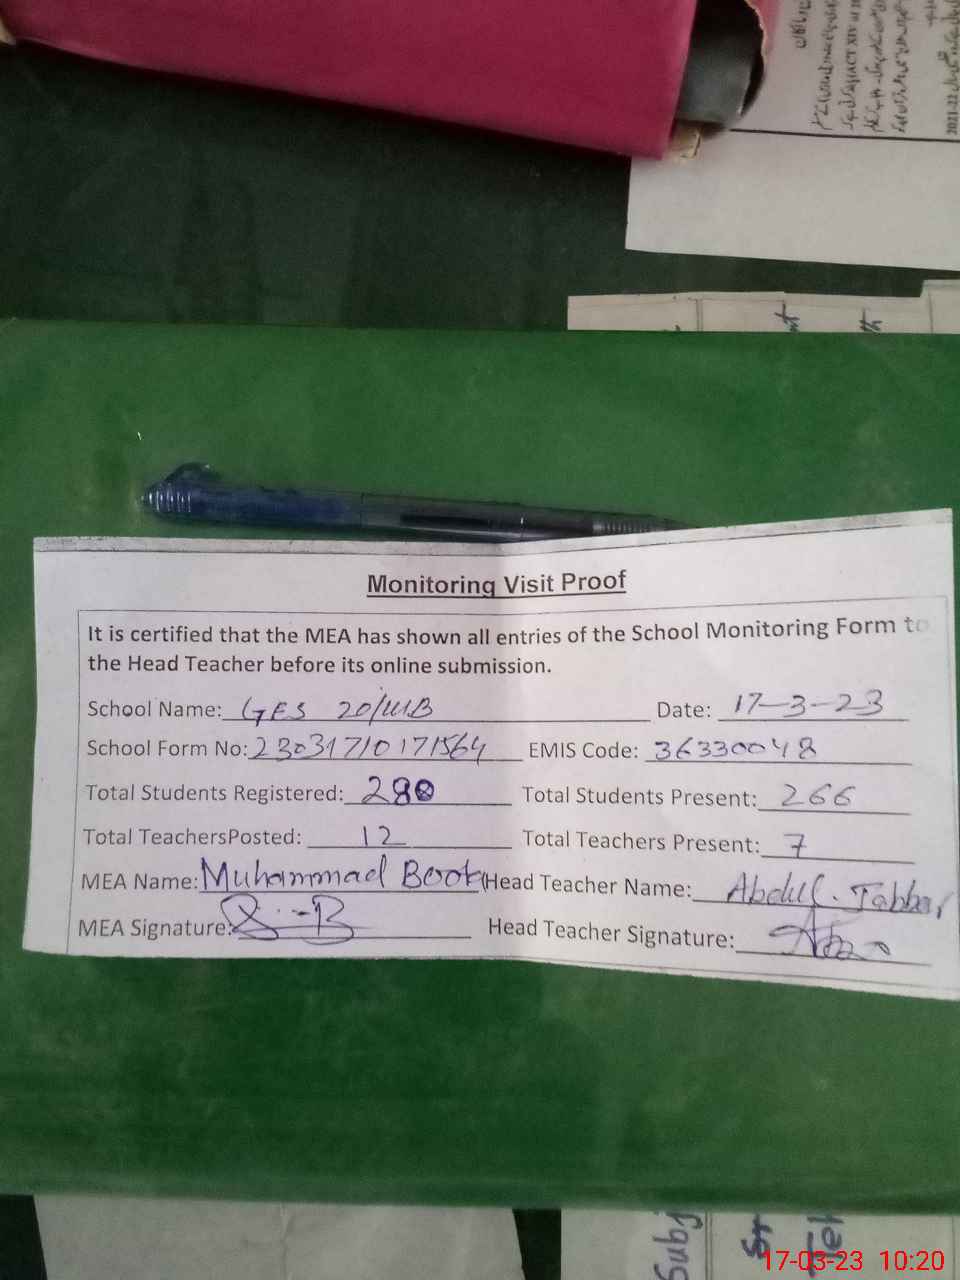 Monitoring Visit Proof
It is certified that the MEA has shown all entries of the School Monitoring Form to
the Head Teacher before its online submission.
School Name: GES 20/MB Date: 17-3-23
School Form No: 23031710171564 EMIS Code: 36330048
Total Students Registered: 280 Total Students Present: 266
Total TeachersPosted: 12 Total Teachers Present: 7
MEA Name: Muhammad Boota Head Teacher Name: Abdul. Jabbar
MEA Signature: Head Teacher Signature:
Subj
Sr
17-03-23 10:20